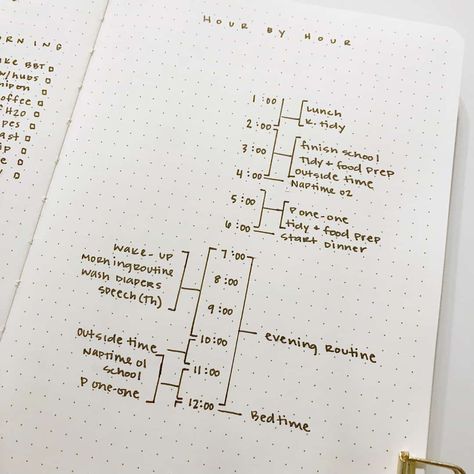 HOUR BY HOUR
ORNING
AKE BBT
W/HUBS
OFFEE
F H2O
PES
AST
IP
E
AY
1:00
LUNCH
K. TIDY
2:00
3:00
FINISH SCHOOL
TIDY + FOOD PREP
OUTSIDE TIME
4:00
NAPTIME 02
5:00
P ONE-ONE
TIDY + FOOD PREP
6:00
START DINNER
WAKE-UP
MORNING ROUTINE
WASH DIAPERS
SPEECH (TH)
7:00
8:00
9:00
10:00
EVENING ROUTINE
OUTSIDE TIME
NAPTIME 01
SCHOOL
P ONE-ONE
11:00
12:00
BEDTIME